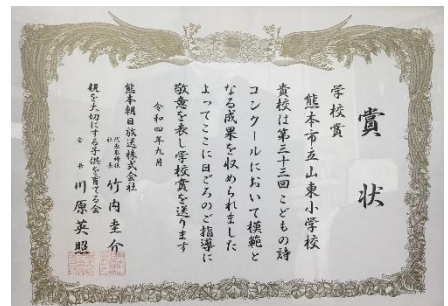 賞状
学校賞
熊本市立山東小学校
貴校は第三十三回こどもの詩
コンクールにおいて模範と
なる成果を収められました
よってここに日ごろのご指導に
敬意を表し学校賞を送ります
令和四年九月
熊本朝日放送株式会社
代表取締役社長 竹内圭介
親を大切にする子供を育てる会
会長 川原英照